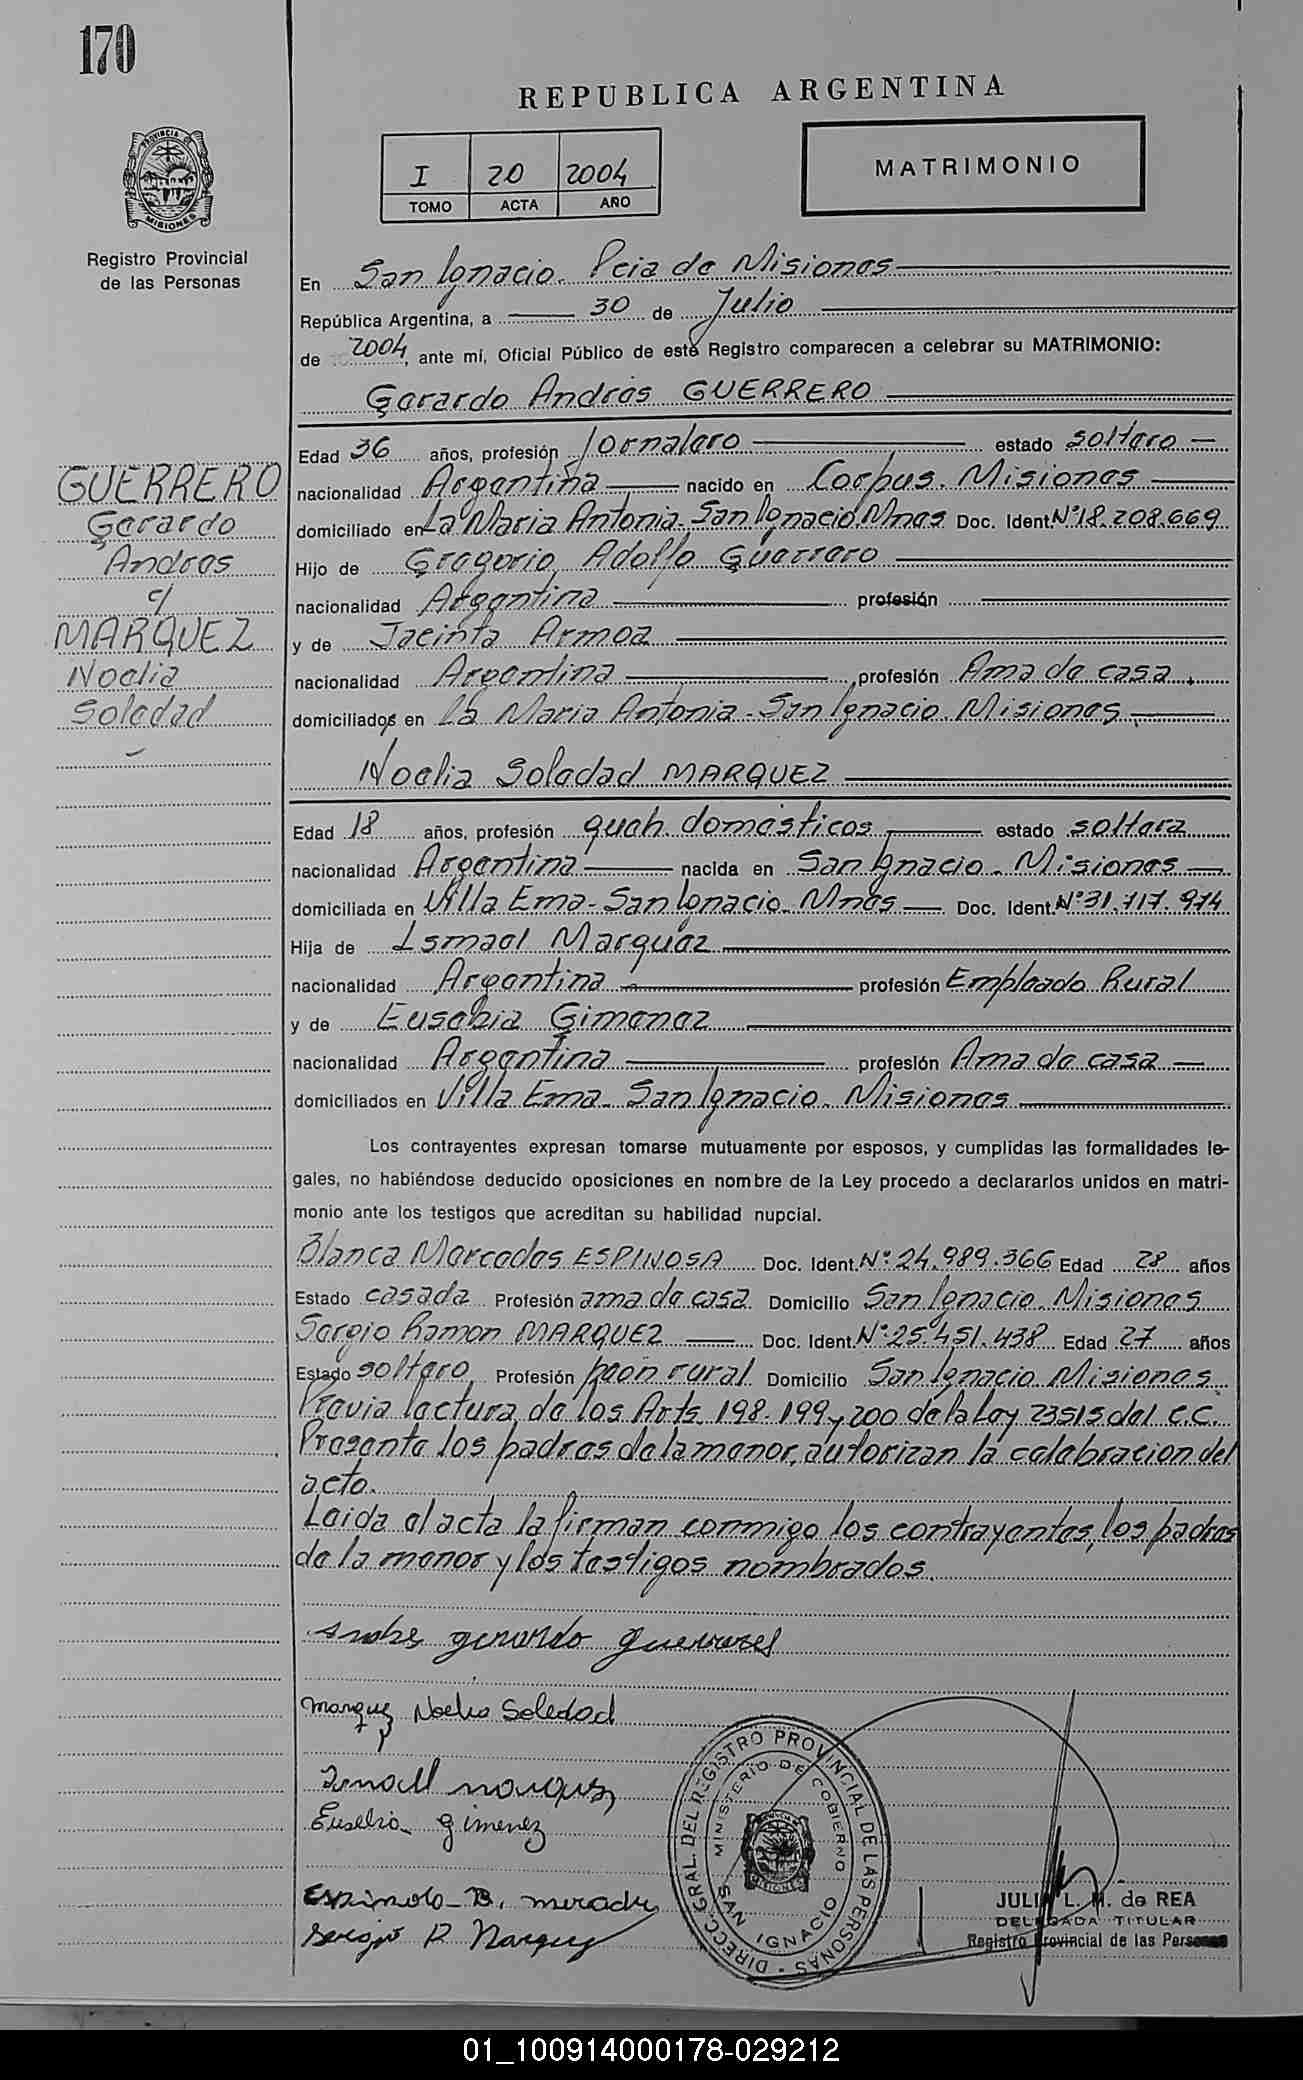 170
REPUBLICA ARGENTINA
I 20 2004
TOMO ACTA AÑO
MATRIMONIO
PROVINCIA DE MISIONES
Registro Provincial
de las Personas
En San Ignacio. Pcia de Misiones
República Argentina, a 30 de Julio
de 2004, ante mí, Oficial Público de este Registro comparecen a celebrar su MATRIMONIO:
Gerardo Andres GUERRERO
Edad 36 años, profesión Jornalero estado soltero
nacionalidad Argentina nacido en Corpus. Misiones
domiciliado en La Maria Antonia. San Ignacio. Mnes Doc. Ident. Nº 18.208.669
Hijo de Gregorio Adolfo Guerrero
nacionalidad Argentina profesión
y de Jacinta Armoa
nacionalidad Argentina profesión Ama de casa
domiciliados en La Maria Antonia - San Ignacio. Misiones
GUERRERO
Gerardo
Andres
c/
MARQUEZ
Noelia
Soledad
Noelia Soledad MARQUEZ
Edad 18 años, profesión queh. domesticos estado soltera
nacionalidad Argentina nacida en San Ignacio. Misiones
domiciliada en Villa Ema - San Ignacio. Mnes Doc. Ident. Nº 31.717.974
Hija de Ismael Marquez
nacionalidad Argentina profesión Empleado Rural
y de Eusebia Gimenez
nacionalidad Argentina profesión Ama de casa
domiciliados en Villa Ema - San Ignacio. Misiones
Los contrayentes expresan tomarse mutuamente por esposos, y cumplidas las formalidades le-
gales, no habiéndose deducido oposiciones en nombre de la Ley procedo a declararlos unidos en matri-
monio ante los testigos que acreditan su habilidad nupcial.
Blanca Mercedes ESPINOSA Doc. Ident. Nº 24.989.366 Edad 28 años
Estado casada Profesión ama de casa Domicilio San Ignacio. Misiones
Sergio Ramon MARQUEZ Doc. Ident. Nº 25.451.438 Edad 27 años
Estado soltero Profesión peon rural Domicilio San Ignacio Misiones
Previa lectura de los Arts. 198. 199 y 200 de la Ley 23515 del C.C.
Presente los padres de la menor, autorizan la celebracion del
acto.
Leida el acta la firman conmigo los contrayentes, los padres
de la menor y los testigos nombrados.
gerardo
Marquez Noelia Soledad
Eusebia Gimenez
Sergio R Marquez
DIRECC. GRAL. DEL REGISTRO PROVINCIAL DE LAS PERSONAS
MINISTERIO DE GOBIERNO
SAN IGNACIO
JULIA L. M. de REA
DELEGADA TITULAR
Registro Provincial de las Personas
01_100914000178-029212